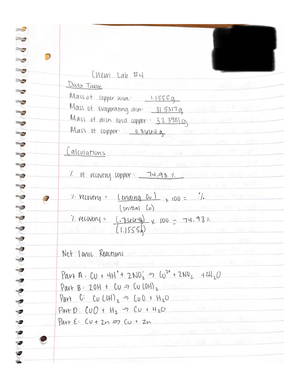 Chem Lab #4
Data Table
Mass of copper wire: 1.1555g
Mass of evaporating dish:
Mass of dish and copper:
Mass of copper:
Calculations
% of recovery copper: 74.98%
% recovery = (ending Cu) x 100 = %
(initial Cu)
% recovery = x 100 = 74.98%
(1.1555g)
Net Ionic Reactions
Part A: Cu + 4H⁺ + 2NO₃ → Cu²⁺ + 2NO₂ + 2H₂O
Part B: 2OH + Cu → Cu(OH)₂
Part C: Cu(OH)₂ → CuO + H₂O
Part D: CuO + H₂ → Cu + H₂O
Part E: Cu + Zn → Cu + Zn